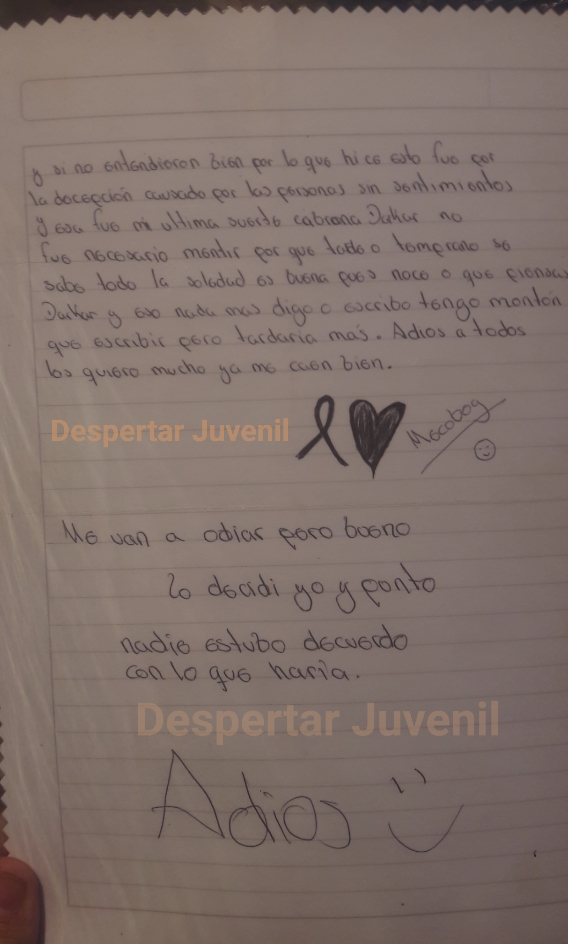 y si no entendieron bien por lo que hice esto fue por
la docepción causado por las personas sin sentimientos
y esa fue mi ultima suerte cabrona Dakar no
fue necesario mentir por que tarde o temprano se
sabe todo la soledad es buena pues noce o que piensas
Dakar y eso nada mas digo o escribo tengo monton
que escribir pero tardaria mas. Adios a todos
los quiero mucho ya me caen bien.
Despertar Juvenil
Mocobog
Me van a odiar pero bueno
lo decidi yo y ponto
nadie estubo decuerdo
con lo que haria.
Despertar Juvenil
Adios